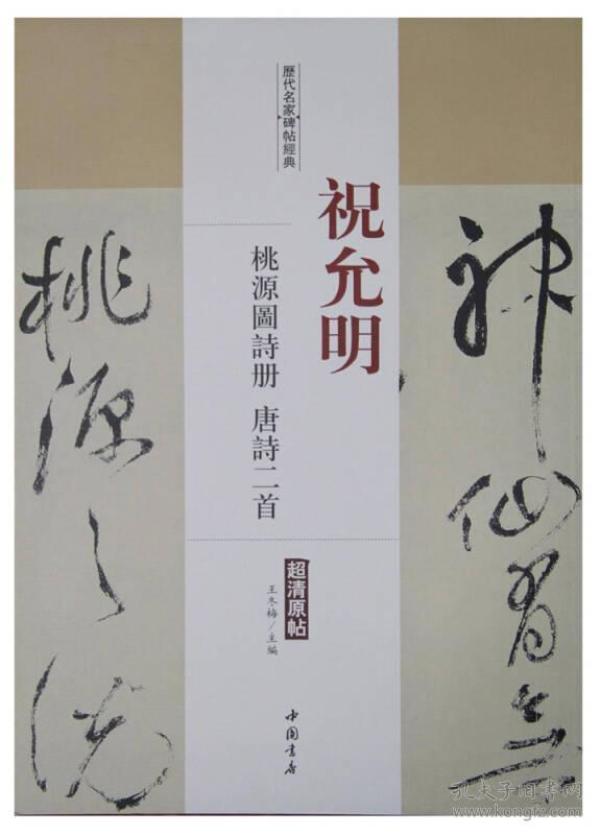 神仙有無
歷代名家碑帖經典
祝允明
桃源圖詩册 唐詩二首
超清原帖
王冬梅/主編
中国書店
桃源之說
孔夫子旧书网
www.kongfz.com